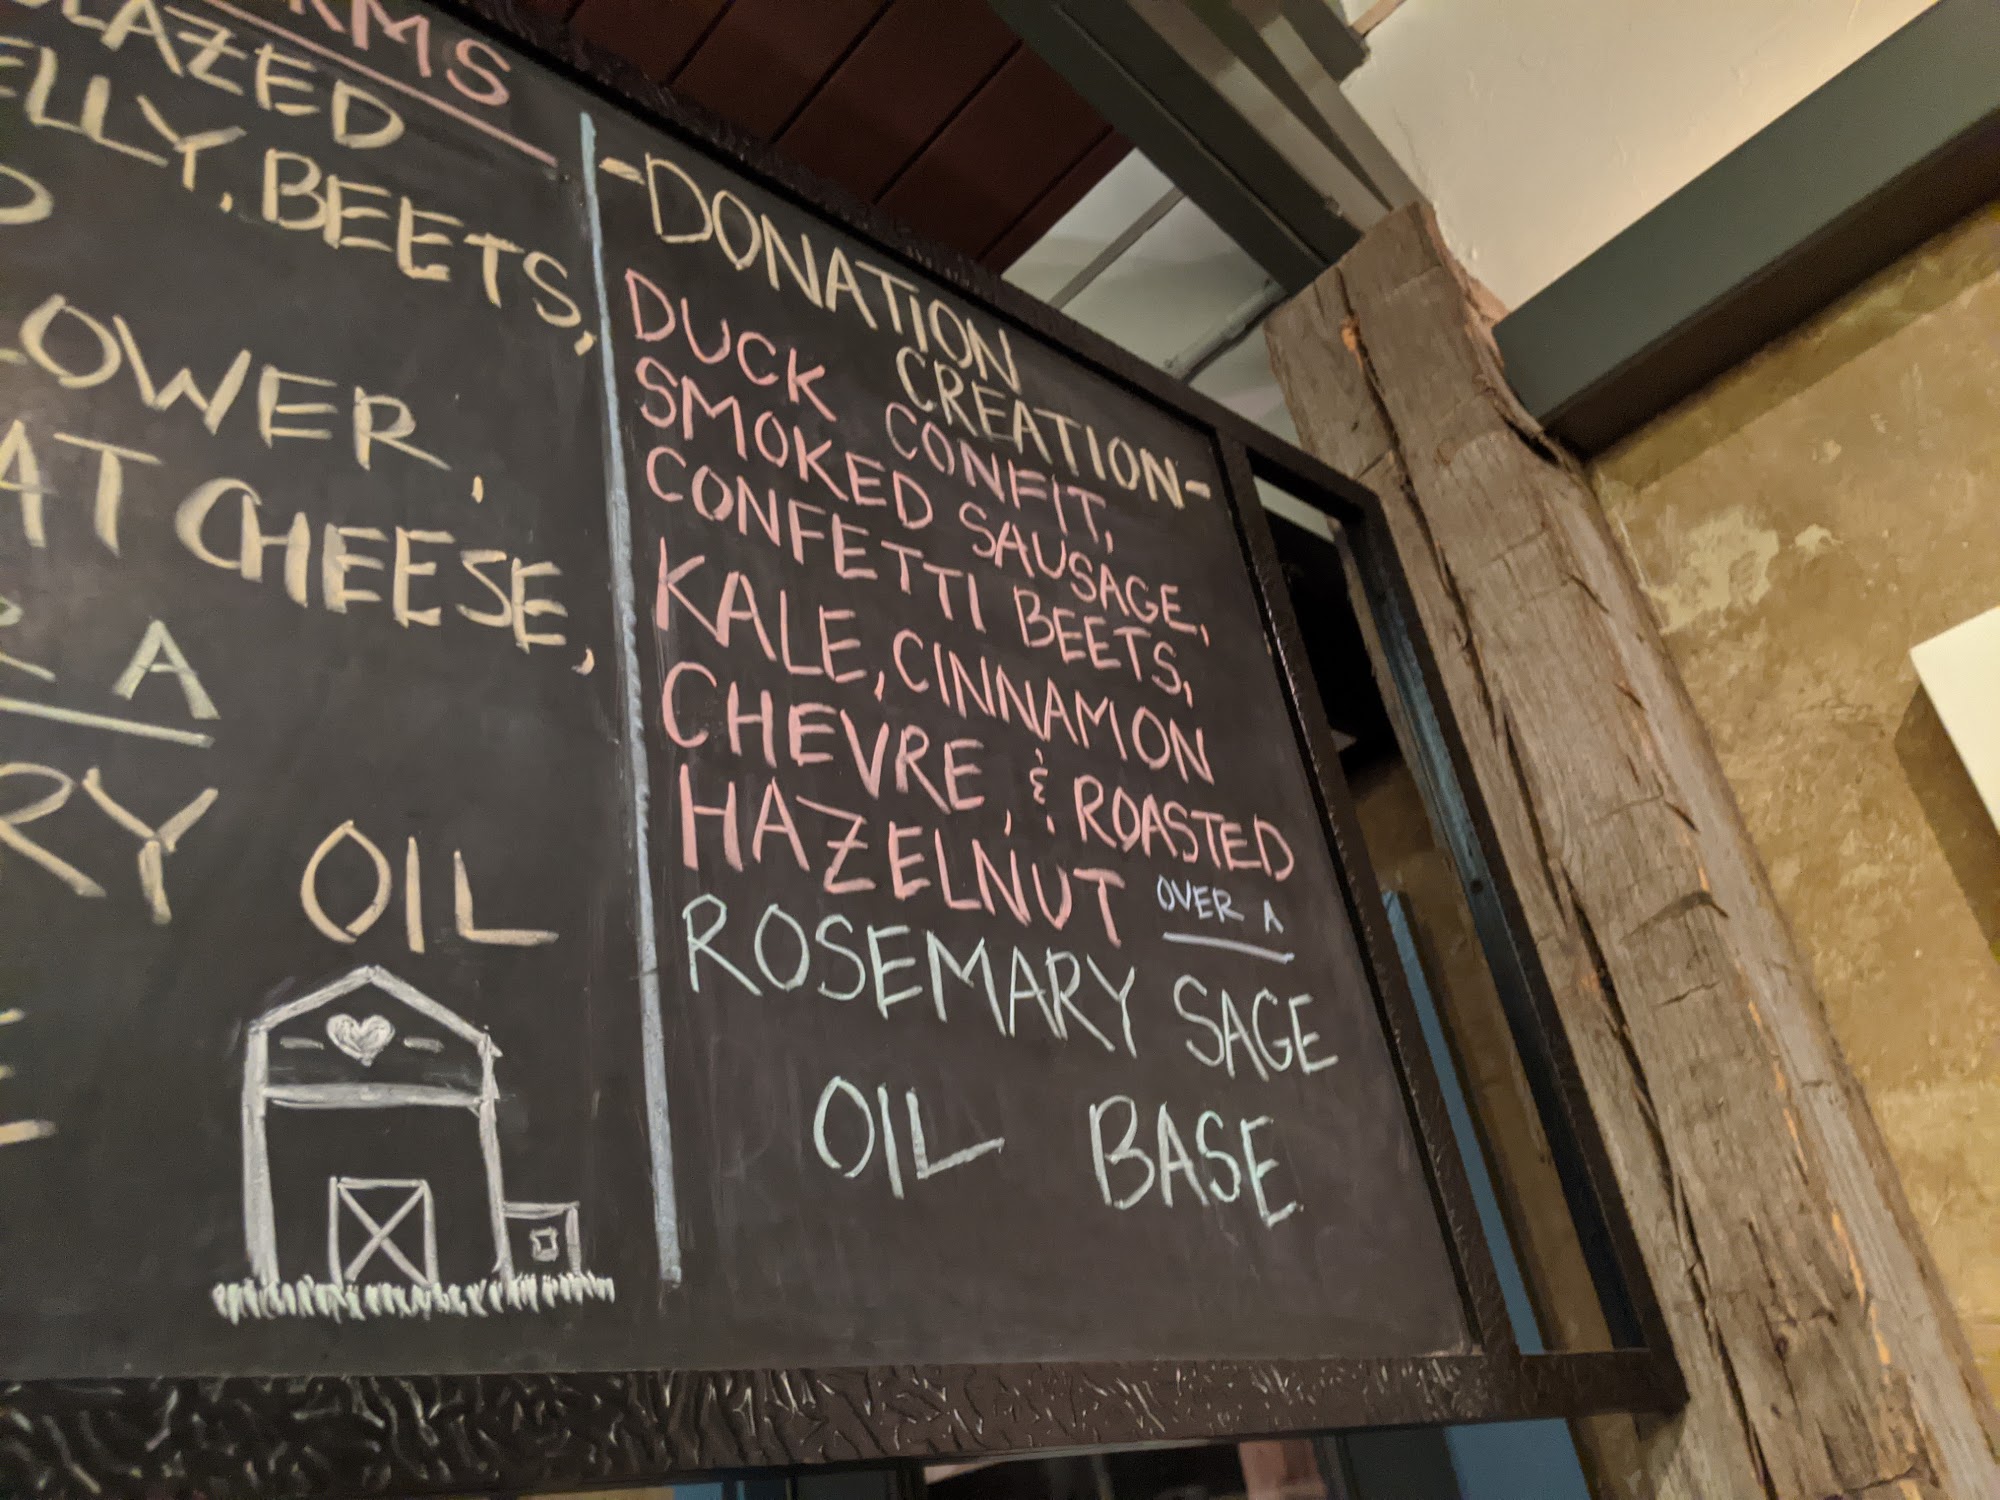 BEETS,
CHEESE,
A
OIL
-DONATION
CREATION-
DUCK CONFIT,
SMOKED SAUSAGE,
CONFETTI BEETS,
KALE, CINNAMON
CHEVRE, & ROASTED
HAZELNUT OVER A
ROSEMARY SAGE
OIL BASE